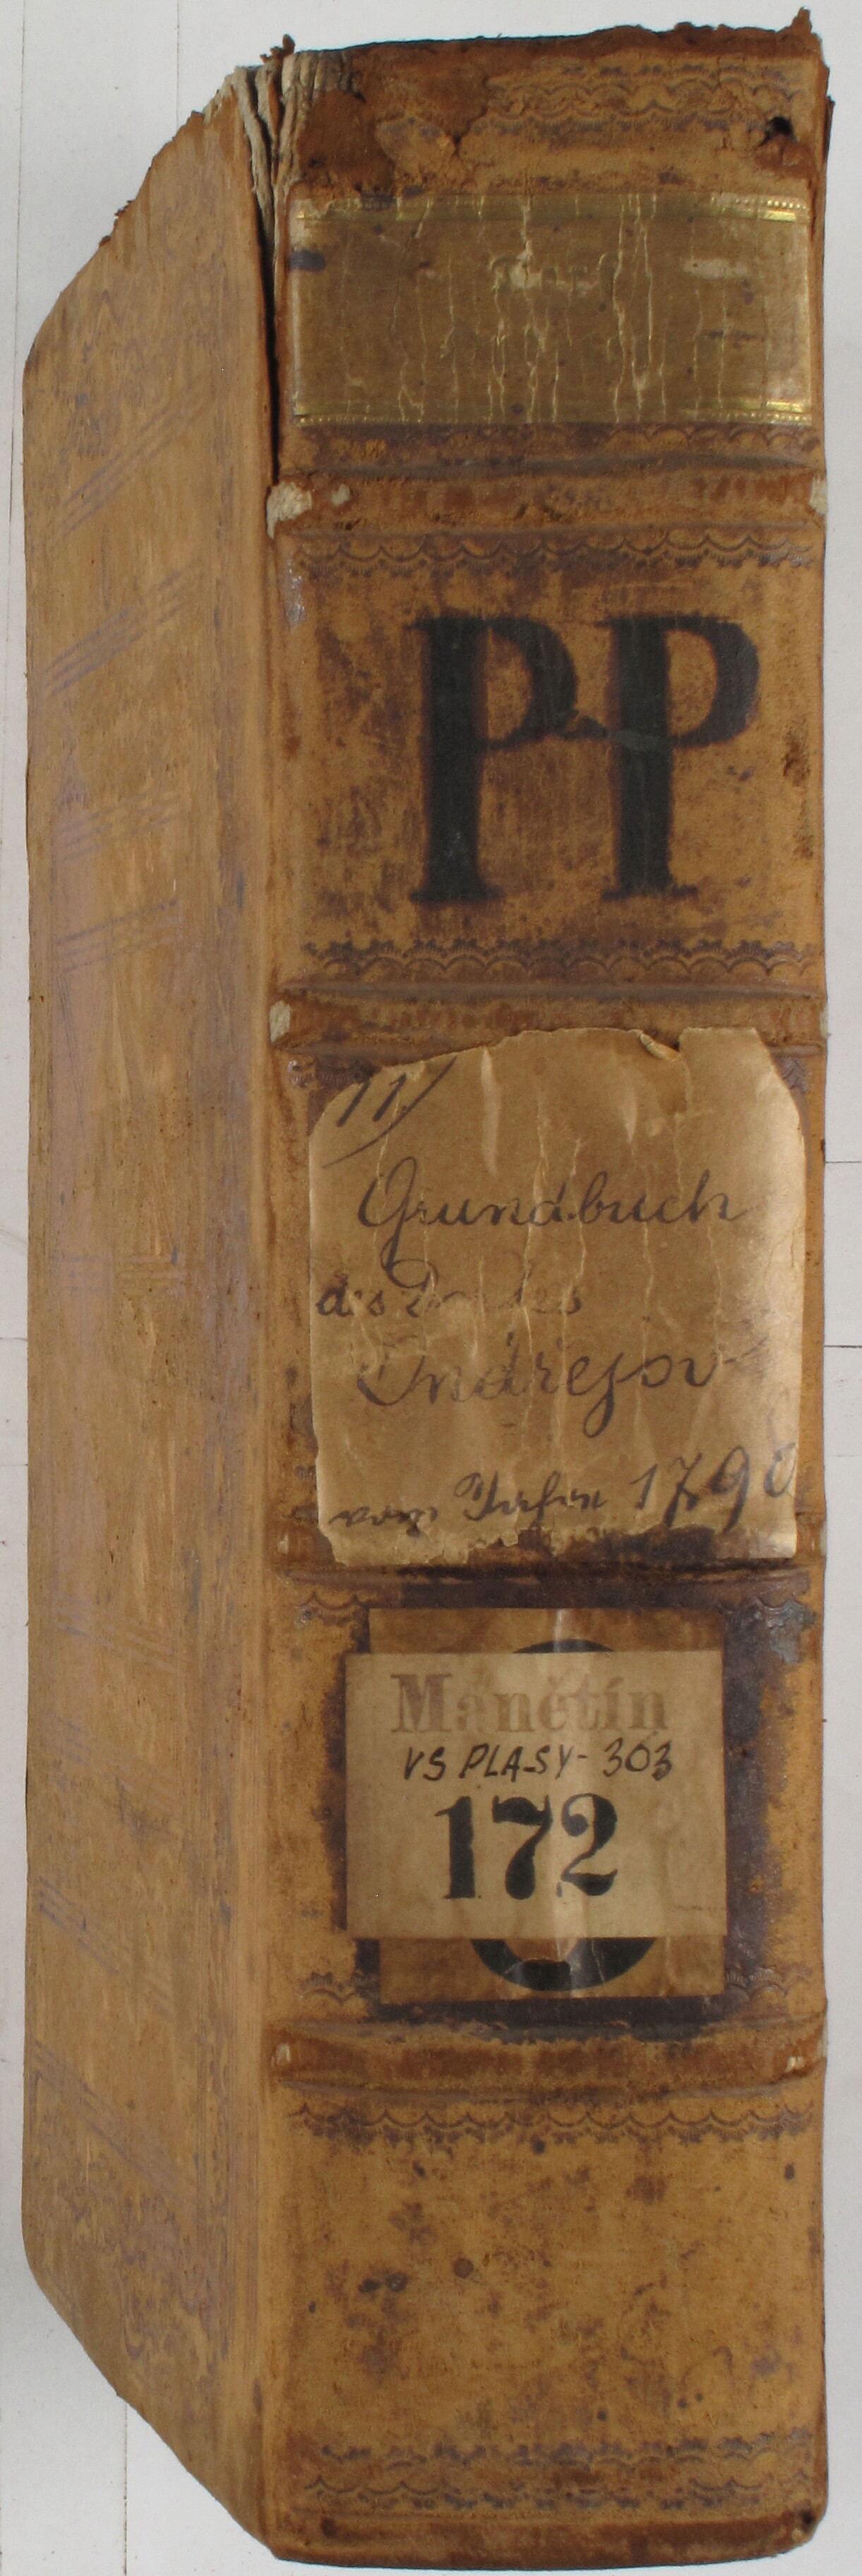 PP
11)
Grundbuch
des Dorfes
Ondřejov
vom Jahre 1790
Manětín
VS PLASY- 303
172